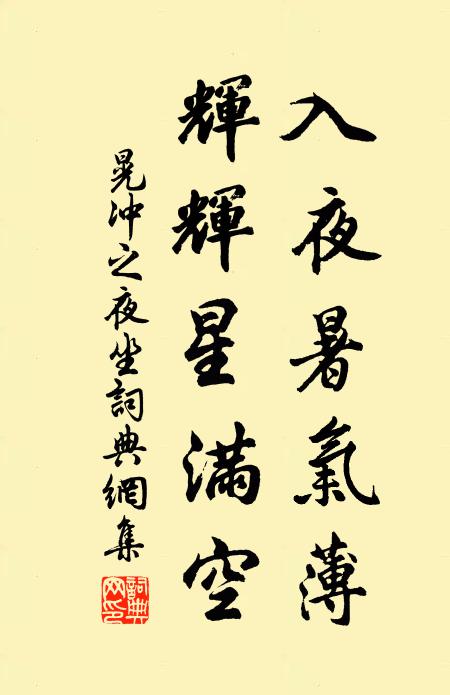 入夜暑氣薄
輝輝星滿空
晁沖之夜坐詞典網集
詞典
网印